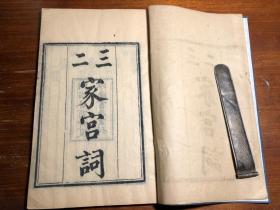 三二
家宮詞